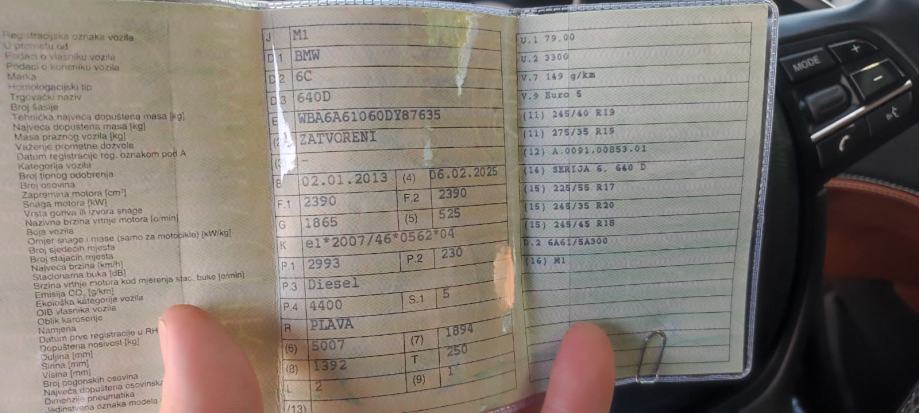 Registracijska oznaka vozila
U prometu od
Podaci o vlasniku vozila
Podaci o korisniku vozila
Marka
Homologacijski tip
Trgovački naziv
Broj šasije
Tehnička najveća dopuštena masa [kg]
Najveća dopuštena masa [kg]
Masa praznog vozila [kg]
Važenje prometne dozvole
Datum registracije reg. oznakom pod A
Kategorija vozila
Broj tipnog odobrenja
Broj osovina
Zapremina motora [cm³]
Snaga motora [kW]
Vrsta goriva ili izvora snage
Nazivna brzina vrtnje motora [o/min]
Boja vozila
Omjer snage i mase (samo za motocikle) [kW/kg]
Broj sjedećih mjesta
Broj stajaćih mjesta
Najveća brzina [km/h]
Stacionarna buka [dB]
Brzina vrtnje motora kod mjerenja stac. buke [o/min]
Emisija CO₂ [g/km]
Ekološka kategorija vozila
OIB vlasnika vozila
Oblik karoserije
Namjena
Datum prve registracije u RH
Dopuštena nosivost [kg]
Duljina [mm]
Širina [mm]
Visina [mm]
Broj pogonskih osovina
Najveća dopuštena osovinsk
Dimenzije pneumatika
Jedinstvena oznaka modela
J M1
D.1 BMW
D.2 6C
D.3 640D
E WBA6A61060DY87635
(2) ZATVORENI
(3) -
B 02.01.2013 (4) 06.02.2025
F.1 2390 F.2 2390
G 1865 (5) 525
K e1*2007/46*0562*04
P.1 2993 P.2 230
P.3 Diesel
P.4 4400 S.1 5
R PLAVA
(6) 5007 (7) 1894
(8) 1392 T 250
L 2 (9) 1
(13)
U.1 79.00
U.2 3300
V.7 149 g/km
V.9 Euro 5
(11) 245/40 R19
(11) 275/35 R19
(12) A.0091.00853.01
(14) SERIJA 6, 640 D
(15) 225/55 R17
(15) 245/35 R20
(15) 245/45 R18
D.2 6A61/5A300
(16) M1
MODE
+
-